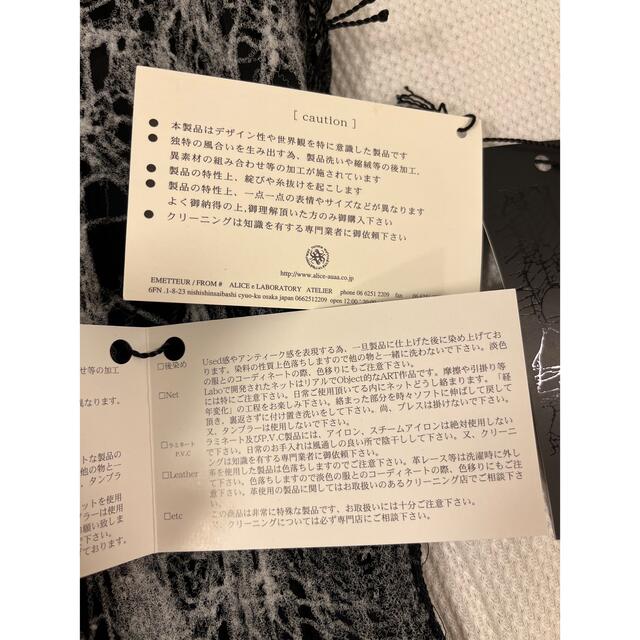 [ caution ]
● 本製品はデザイン性や世界観を特に意識した製品です
● 独特の風合いを生み出す為、製品洗いや縮絨等の後加工、
異素材の組み合わせ等の加工が施されています
● 製品の特性上、綻びや糸抜けを起こします
● 製品の特性上、一点一点の表情やサイズなどが異なります
よく御納得の上,御理解頂いた方のみ御購入下さい
● クリーニングは知識を有する専門業者に御依頼下さい
http://www.alice-auaa.co.jp
EMETTEUR / FROM # ALICE e LABORATORY ATELIER phone 06 6251 2209 fax
6FN .1-8-23 nishishinsaibashi cyuo-ku osaka japan 0662512209 open 12:00
□後染め
Used感やアンティーク感を表現する為、一旦製品に仕上げた後に染め上げてお
ります。染料の性質上色落ちしますので他の物と一緒に洗わないで下さい。淡色
の服とのコーディネートの際、色移りにもご注意下さい。
□Net
Laboで開発されたネットはリアルでObject的なART作品です。摩擦や引掛り等
には特にご注意下さい。日常ご使用頂いてる内にネットどうし絡まります。「経
年変化」の工程をお楽しみ下さい。絡まった部分を時々ソフトに伸ばして戻して
頂き、裏返さずに付け置き洗いをして下さい。尚、ブレスは掛けないで下さい。
又、タンブラーは使用しないで下さい。
□ラミネート
P.V.C
ラミネート及びP.V.C製品には、アイロン、スチームアイロンは絶対使用しない
で下さい。日常のお手入れは風通しの良い所で陰干しして下さい。又、クリーニ
ングは知識を有する専門業者に御依頼下さい。
□Leather
革を使用した製品は色落ちしますのでご注意下さい。革レース等は洗濯時に外し
て下さい。色落ちしますので淡色の服とのコーディネートの際、色移りにもご注
意下さい。革使用の製品に関してはお取扱いのあるクリーニング店でご相談下さ
い。
□etc
この商品は非常に特殊な製品です、お取扱いには十分ご注意下さい。
又、クリーニングについては必ず専門店にご相談下さい。